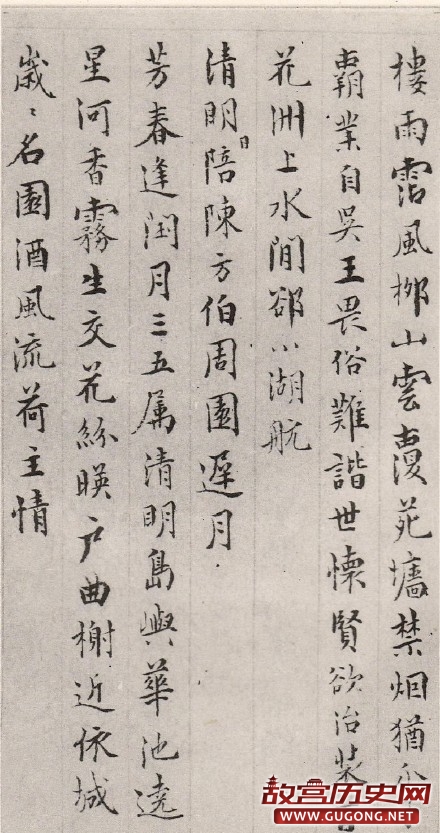 楼雨霑風柳山雲覆苑墻禁烟猶
霸業自吳王畏俗難諧世懷賢欲治裝
花洲上水閒鄒小湖航
清明日陪陳方伯周園遲月
芳春逢閏月三五属清明島嶼華池遶
星河香霧生交花紛暎户曲榭近依城
嵗〻名園酒風流荷主情
故宫历史网
WWW.GUGONG.NET